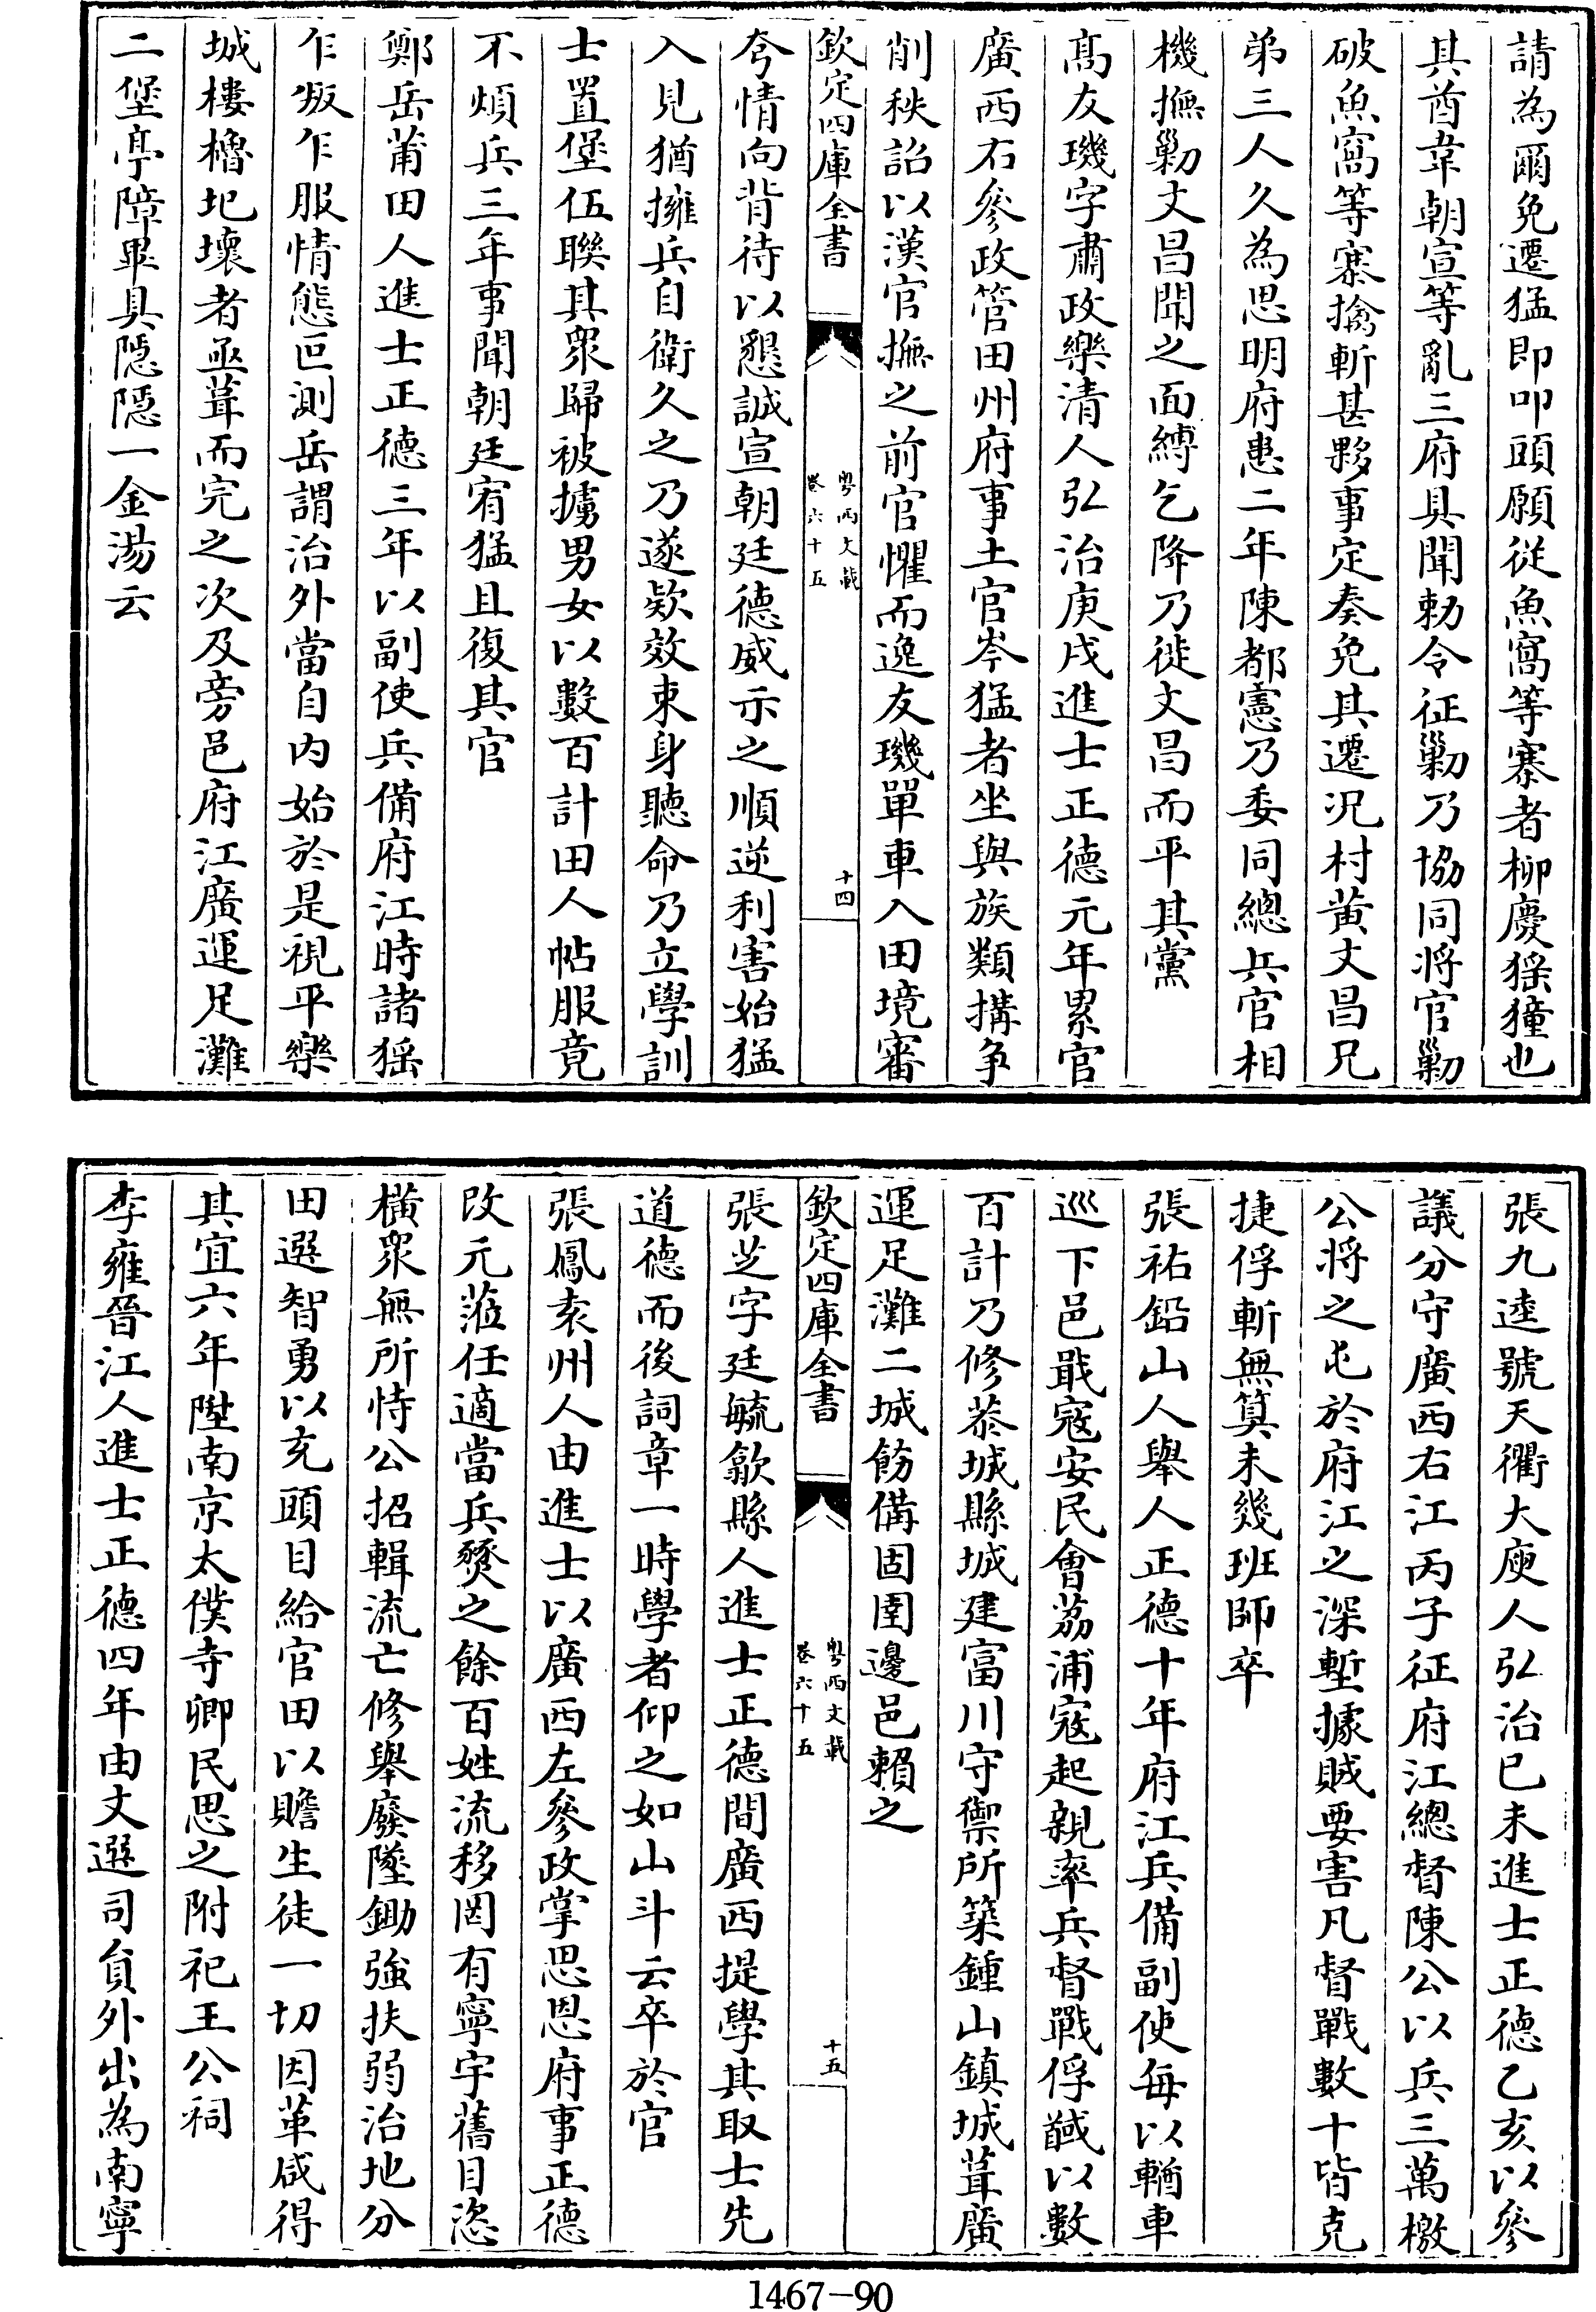 請為爾免遷猛即叩頭願從魚窩等寨者柳慶猺獞也
其酋韋朝宣等亂三府具聞勅令征勦乃協同將官勦
破魚窩等寨擒斬甚夥事定奏免其遷况村黄文昌兄
弟三人久為思明府患二年陳都憲乃委同總兵官相
機撫勦文昌聞之面縛乞降乃徙文昌而平其黨
髙友璣字肅政樂清人弘治庚戌進士正德元年累官
廣西右參政管田州府事土官岑猛者坐與族類搆争
削秩詔以漢官撫之前官懼而逸友璣單車入田境審
欽定四庫全書
粤西文載
卷六十五
十四
夸情向背待以懇誠宣朝廷德威示之順逆利害始猛
入見猶擁兵自衛久之乃遂欵效束身聽命乃立學訓
士置堡伍聯其衆歸被擄男女以數百計田人帖服竟
不煩兵三年事聞朝廷宥猛且復其官
鄭岳莆田人進士正德三年以副使兵備府江時諸猺
乍叛乍服情態叵測岳謂治外當自内始於是視平樂
城樓櫓圮壞者亟葺而完之次及旁邑府江廣運足灘
二堡亭障畢具隠隠一金湯云
張九逵號天衢大庾人弘治己未進士正德乙亥以參
議分守廣西右江丙子征府江總督陳公以兵三萬檄
公將之屯於府江之深塹據賊要害凡督戰數十皆克
捷俘斬無算未幾班師卒
張祐鉛山人舉人正德十年府江兵備副使每以輶車
巡下邑戢寇安民會荔浦寇起親率兵督戰俘馘以數
百計乃修恭城縣城建富川守禦所築鍾山鎮城葺廣
運足灘二城飭備固圉邊邑賴之
欽定四庫全書
粤西文載
卷六十五
十五
張芝字廷毓歙縣人進士正德間廣西提學其取士先
道德而後詞章一時學者仰之如山斗云卒於官
張鳳袁州人由進士以廣西左參政掌思恩府事正德
改元蒞任適當兵燹之餘百姓流移罔有寧宇舊目恣
横衆無所恃公招輯流亡修舉廢墜鋤強扶弱治地分
田選智勇以充頭目給官田以贍生徒一切因革咸得
其宜六年陞南京太僕寺卿民思之附祀王公祠
李雍晉江人進士正德四年由文選司員外出為南寧
1467-90